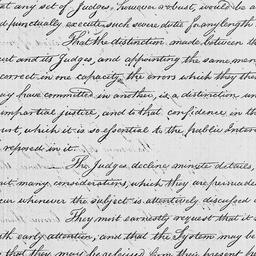 at any set of Judges, however robust, would be a
d punctually execute such severe duties for any length
That the distinction made between th
urt and its Judges, and appointing the same men
correct in one capacity, the errors which they them
ay have committed in another, is a distinction un
impartial justice, and to that confidence in th
urt, which it is so essential to the public Inter
reposed in it.
The Judges decline minute details,
it many considerations, which they are persuade
cur whenever the subject is attentively discussed
They most earnestly request that it
th early attention, and that the System may be
that they may be relieved from their present